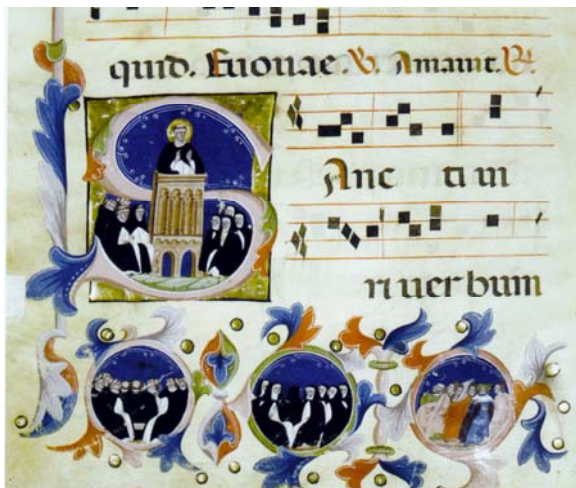 quid. Euouae. V. Amauit. R.
SAnc ti ui
ri uerbum